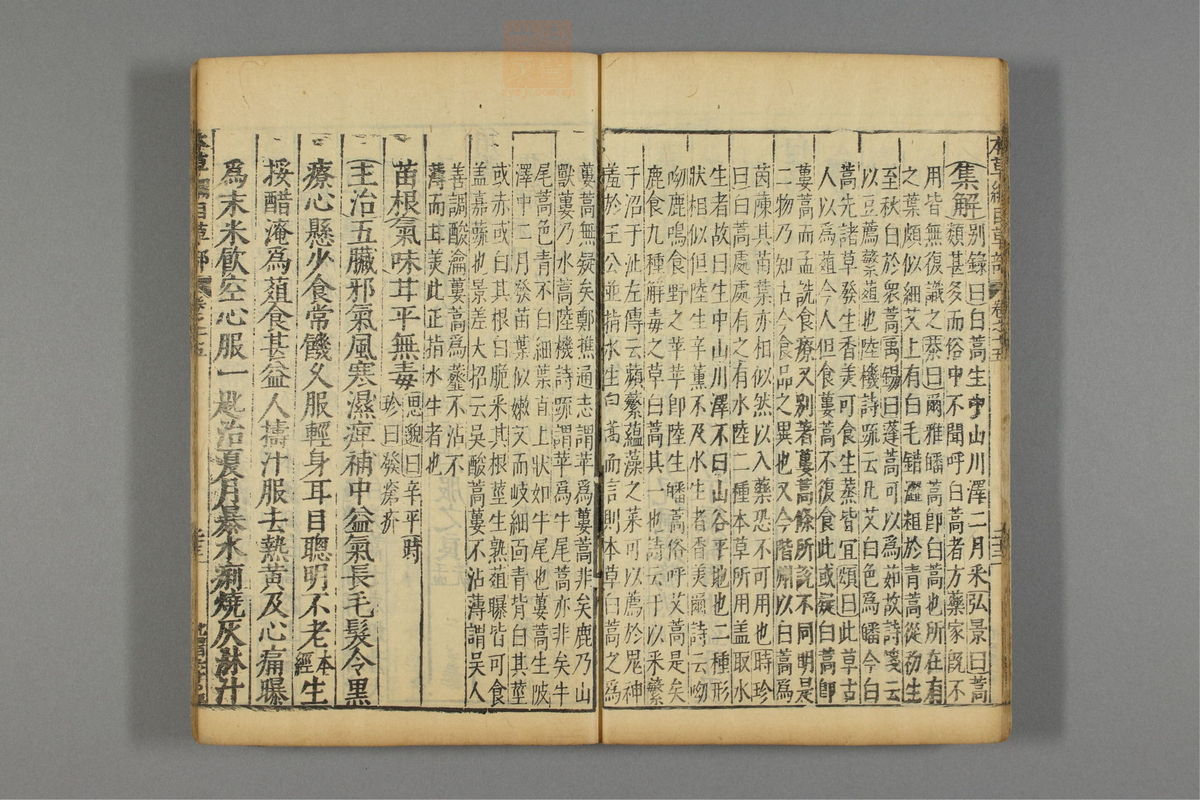 本草綱目草部 卷之十五
集解別錄曰白蒿生中山川澤二月采弘景曰蒿
類甚多而俗中不聞呼白蒿者方藥家旣不
用皆無復識之恭曰爾雅皤蒿卽白蒿也所在有
之葉頗似細艾上有白毛錯澀粗於青蒿從初生
至秋白於衆蒿禹錫曰蓬蒿可以爲茹故詩箋云
以豆薦蘩葅也陸機詩疏云凡艾白色爲皤今白
蒿先諸草發生香美可食生蒸皆宜頌曰此草古
人以爲葅今人但食蔞蒿不復食此或疑白蒿卽
蔞蒿而孟詵食療又別著蔞蒿條所說不同明是
二物乃知古今食品之異也又今階州以白蒿爲
茵蔯其苗葉亦相似然以入藥恐不可用也時珍
曰白蒿處處有之有水陸二種本草所用蓋取水
生者故曰生中山川澤不曰山谷平地也二種形
狀相似但陸生辛薰不及水生者香美爾詩云呦
呦鹿鳴食野之苹苹卽陸生皤蒿俗呼艾蒿是矣
鹿食九種解毒之草白蒿其一也詩云于以采蘩
于沼于沚左傳云蘋蘩蘊藻之菜可以薦於鬼神
羞於王公並指水生白蒿而言則本草白蒿之爲
蔞蒿無疑矣鄭樵通志謂苹爲蔞蒿非矣鹿乃山
獸蔞乃水蒿陸機詩疏謂苹爲牛尾蒿亦非矣牛
尾蒿色青不白細葉直上狀如牛尾也蔞蒿生陂
澤中二月發苗葉似嫩艾而岐細面青背白其莖
或赤或白其根白脆采其根莖生熟葅曝皆可食
蓋嘉蔬也景差大招云吳酸蒿蔞不沾薄謂吳人
善調酸瀹蔞蒿爲虀不沾不
薄而甘美此正指水生者也
苗根氣味甘平無毒思邈曰辛平時
珍曰發瘡疥
主治五臟邪氣風寒濕痺補中益氣長毛髮令黑
療心懸少食常饑久服輕身耳目聰明不老本經生
挼醋淹爲葅食甚益人擣汁服去熱黃及心痛曝
爲末米飲空心服一匙治夏月暴水痢燒灰淋汁
本草綱目草部 卷之十五